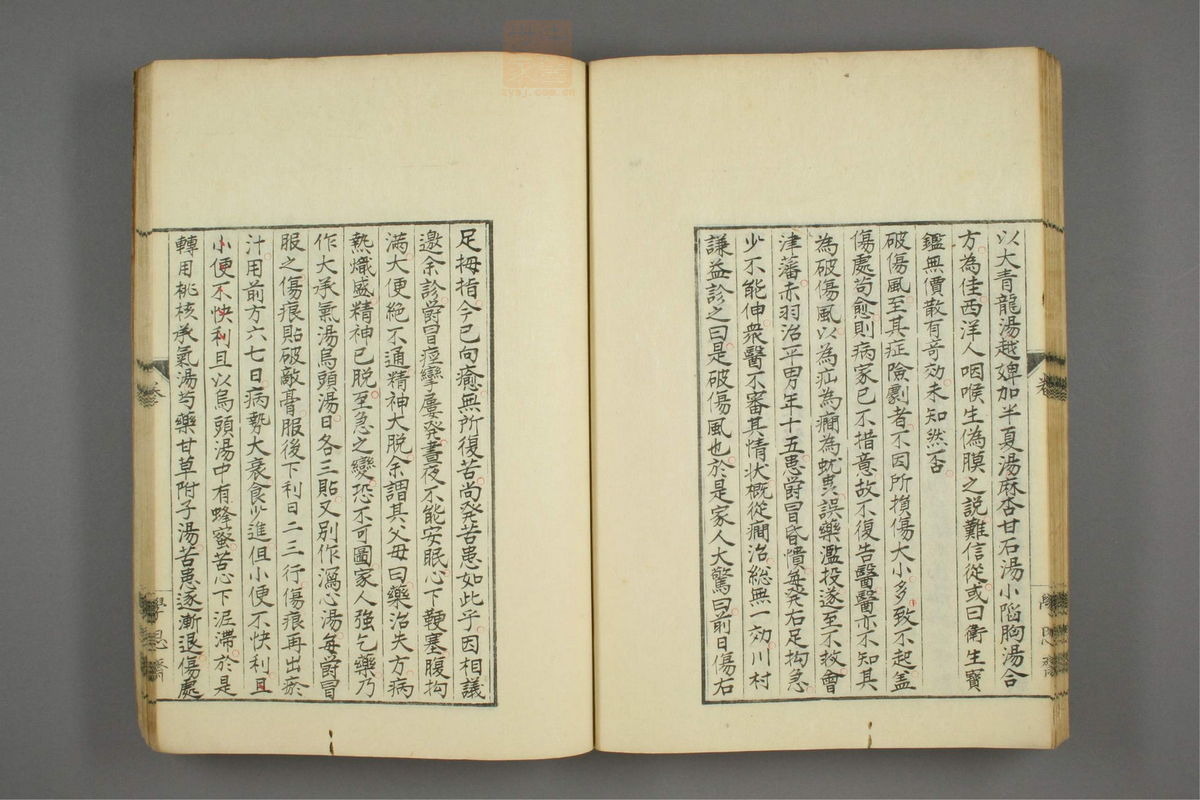 以大青龍湯越婢加半夏湯麻杏甘石湯小陷胸湯合
方為佳西洋人咽喉生偽膜之説難信從或曰衛生寶
鑑無價散有奇効未知然否
破傷風至其症險劇者不因所損傷大小多致不起盖
傷處苟愈則病家已不措意故不復告醫醫亦不知其
為破傷風以為疝為癇為蚘誤藥濫投遂至不救會
津藩赤羽治平男年十五患欝冒昏憒每発右足拘急
少不能伸衆醫不審其情状概從癇治総無一効川村
謙益診之曰是破傷風也於是家人大驚曰前日傷右
足拇指今已向癒無所復苦尚発苦患如此乎因相議
邀余診欝冒痙攣屢発晝夜不能安眠心下鞕塞腹拘
満大便絶不通精神大脱余謂其父母曰藥治失方病
熱熾盛精神已脱至急之變恐不可圖家人強乞藥乃
作大承氣湯烏頭湯日各三貼又別作瀉心湯每欝冒
服之傷痕貼破敵膏服後下利日二三行傷痕再出瘀
汁用前方六七日病勢大衰食少進但小便不快利且
小便不快利且以烏頭湯中有蜂蜜苦心下泥滯於是
轉用桃核承氣湯芍藥甘草附子湯苦患遂漸退傷處
卷
學思齋
zysj.com.cn